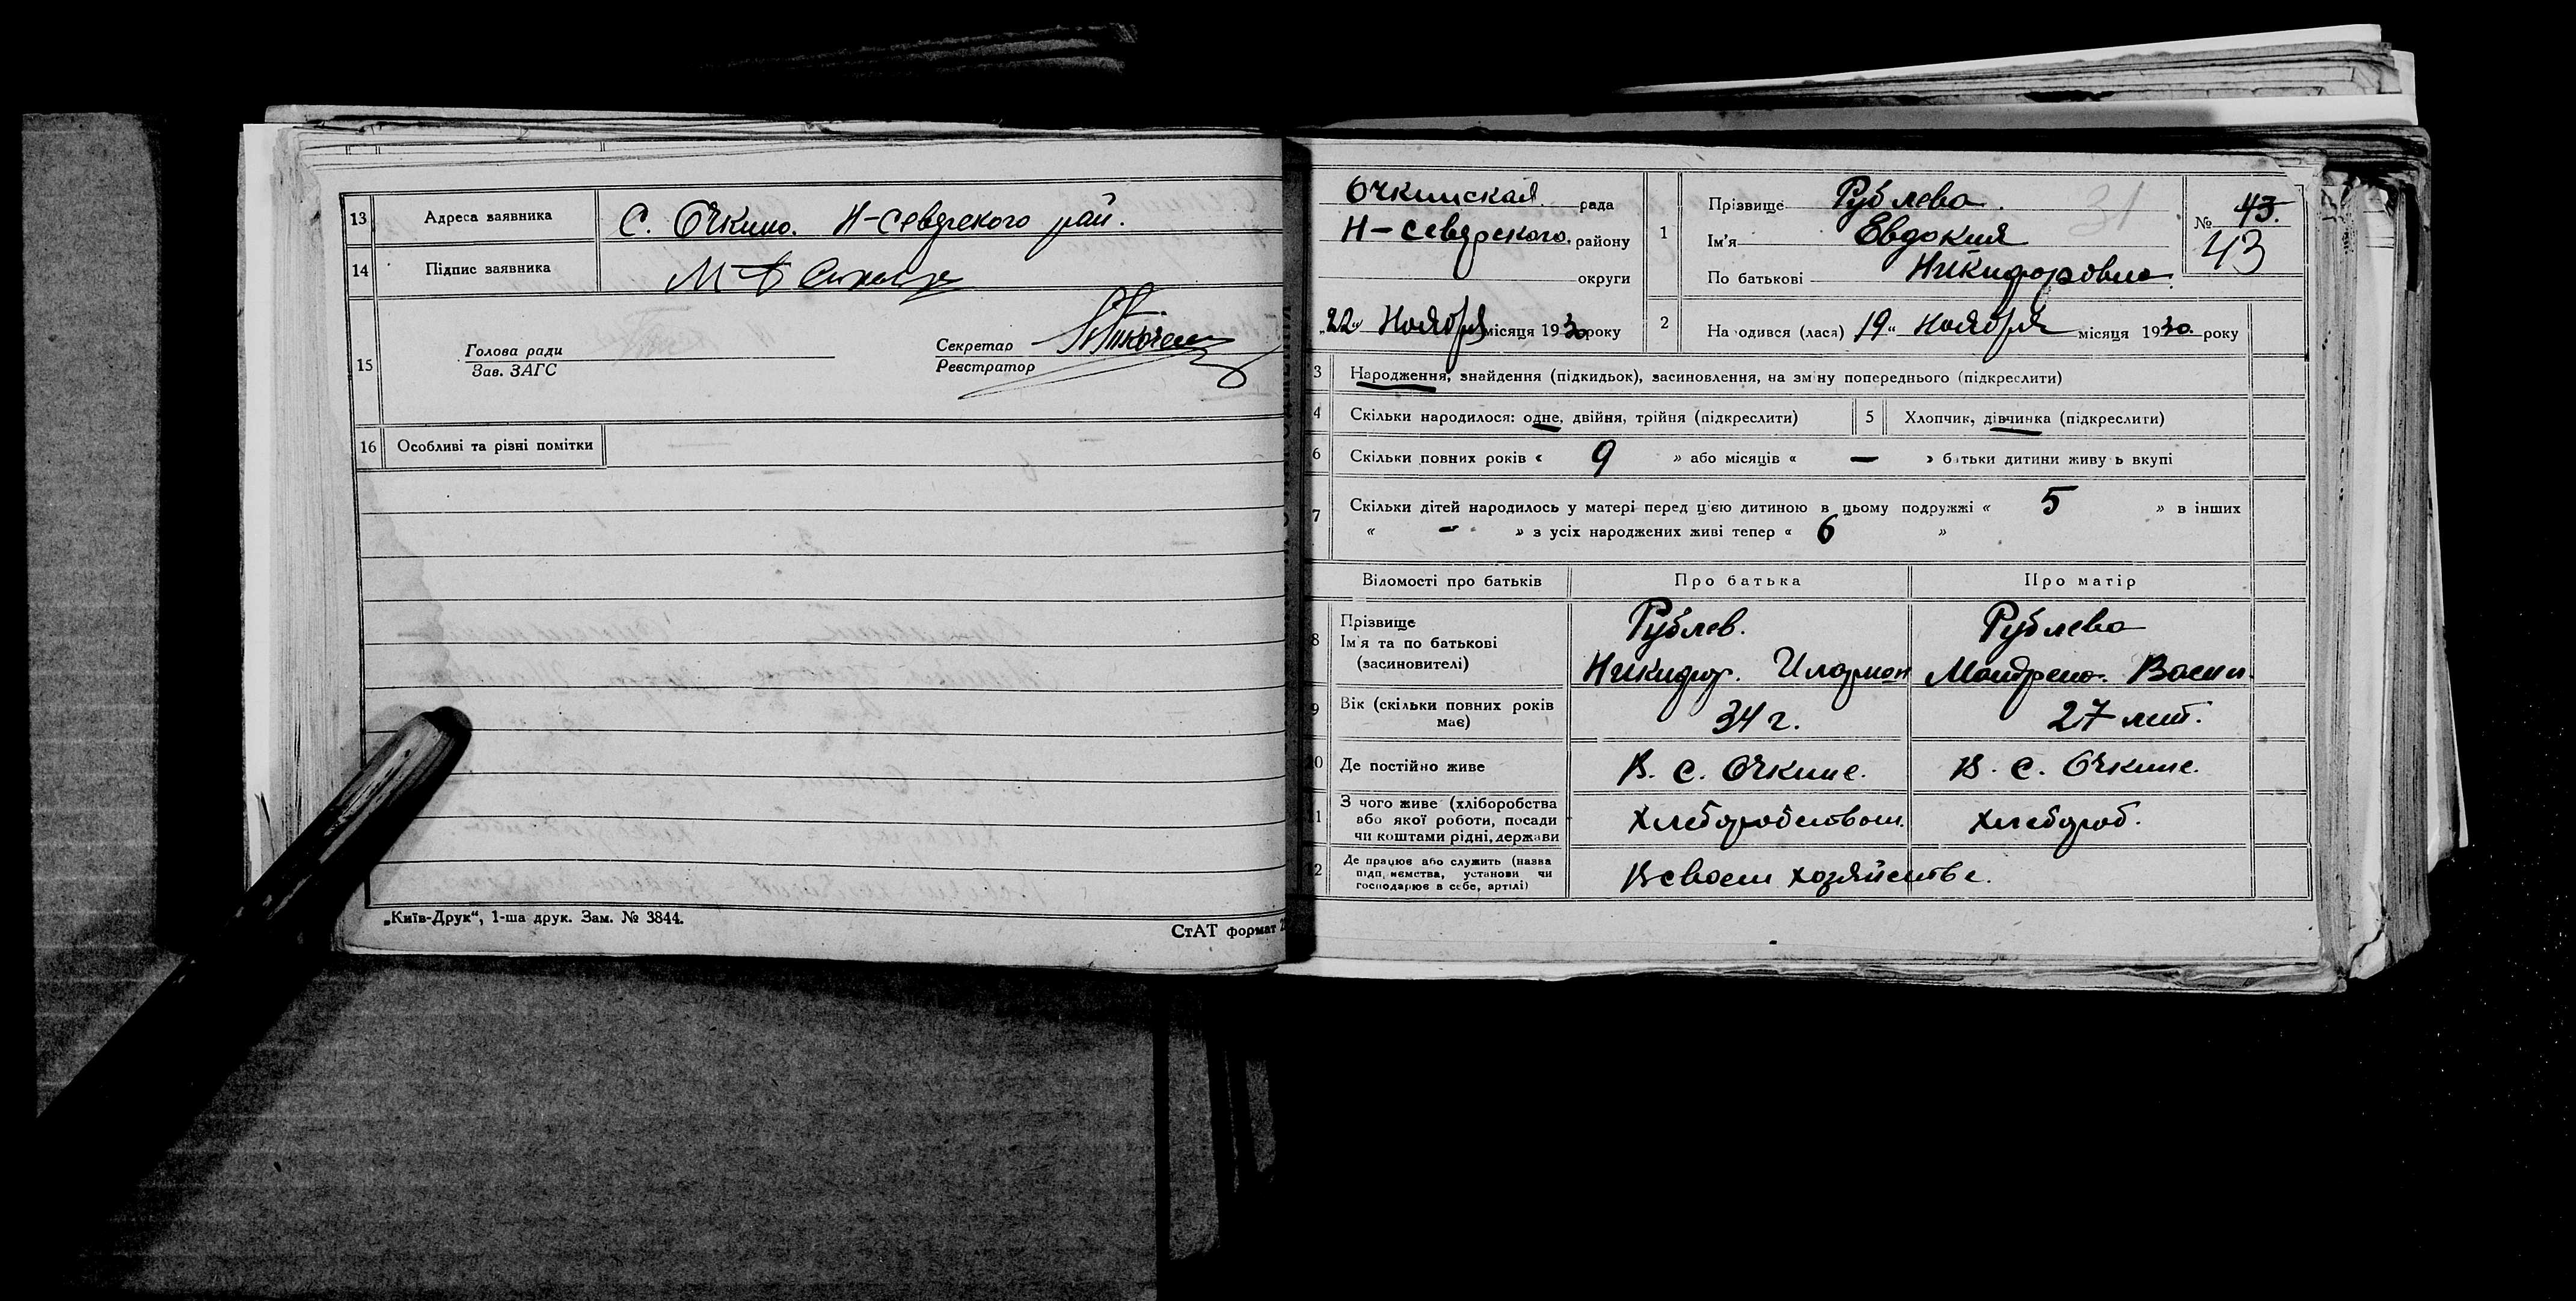 13 Адреса заявника С. Очкино. Н-Севдрского рай.
14 Підпис заявника
15 Голова ради
Зав. ЗАГС
Секретар
Реєстратор
16 Особливі та різні помітки
„Київ-Друк“, 1-ша друк. Зам. № 3844.
СтАТ формат
Очкинская рада
Н-Севдрского району
округи
„22“ Ноября місяця 1930 року
1 Прізвище Рублева.
31
Ім'я Евдокия
По батькові Никифоровна
№ 43.
43
2 На одився (лася) 19 „ Ноября місяця 1930 року
3 Народження, знайдення (підкидьок), засиновлення, на зміну попереднього (підкреслити)
4 Скільки народилося: одне, двійня, трійня (підкреслити) 5 Хлопчик, дівчинка (підкреслити)
6 Скільки повних років « 9 » або місяців « — » батьки дитини живу ь вкупі
7 Скільки дітей народилось у матері перед цією дитиною в цьому подружжі « 5 » в інших
« — » з усіх народжених живі тепер « 6 »
Відомості про батьків Про батька Про матір
8 Прізвище Рублев. Рублева
Ім'я та по батькові
(засиновителі) Никифор. Иларион Матрена. Васил.
9 Вік (скільки повних років має) 34 г. 27 лет.
10 Де постійно живе В. с. Очкине. В. с. Очкине.
11 З чого живе (хліборобства
або якої роботи, посади
чи коштами рідні, держави Хлеборобством. Хлебороб.
12 Де працює або служить (назва
підп, иємства, установи чи
господарює в себе, артілі) В своем хозяйстве.